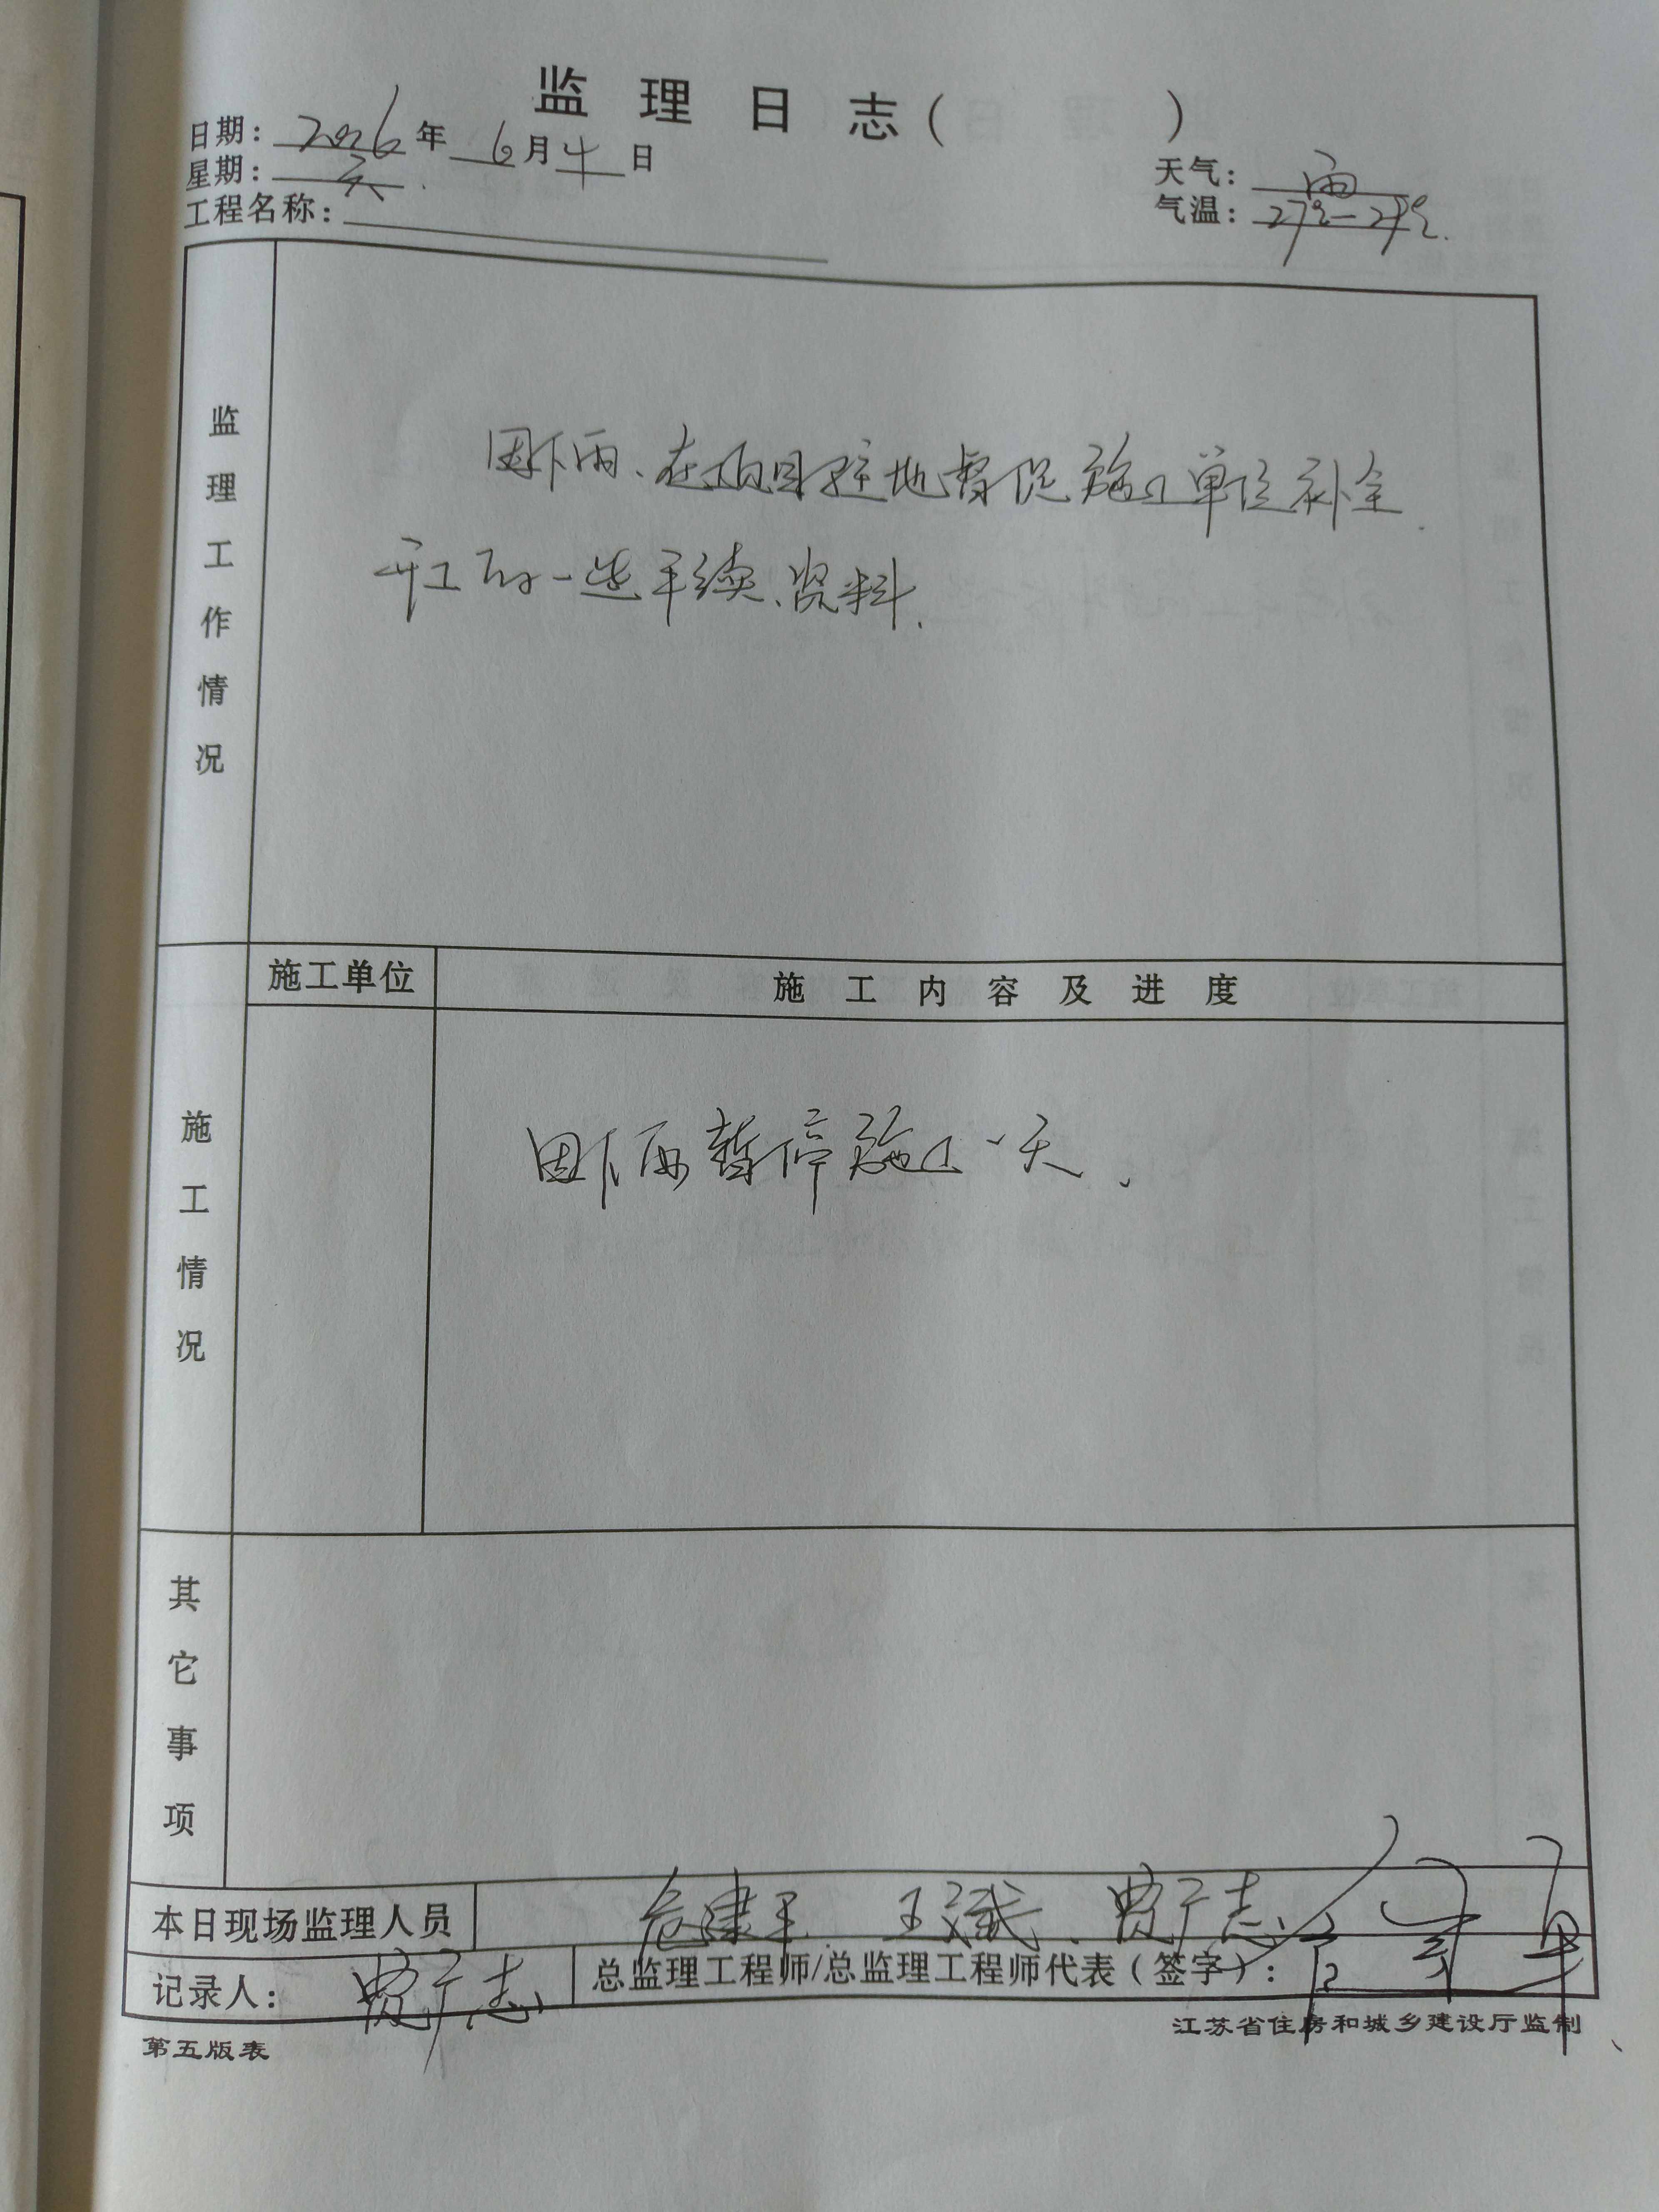 监理日志(    )
日期：2026年6月4日
星期：
天气：雨
工程名称：
气温：27℃-29℃.
监理工作情况
因下雨、在项目驻地督促施工单位补全
开工的一些手续、资料.
施工情况
施工单位
施工内容及进度
因下雨暂停施工一天.
其它事项
本日现场监理人员
建平 王斌、贾广志
记录人：贾广志
总监理工程师/总监理工程师代表（签字）：
第五版表
江苏省住房和城乡建设厅监制